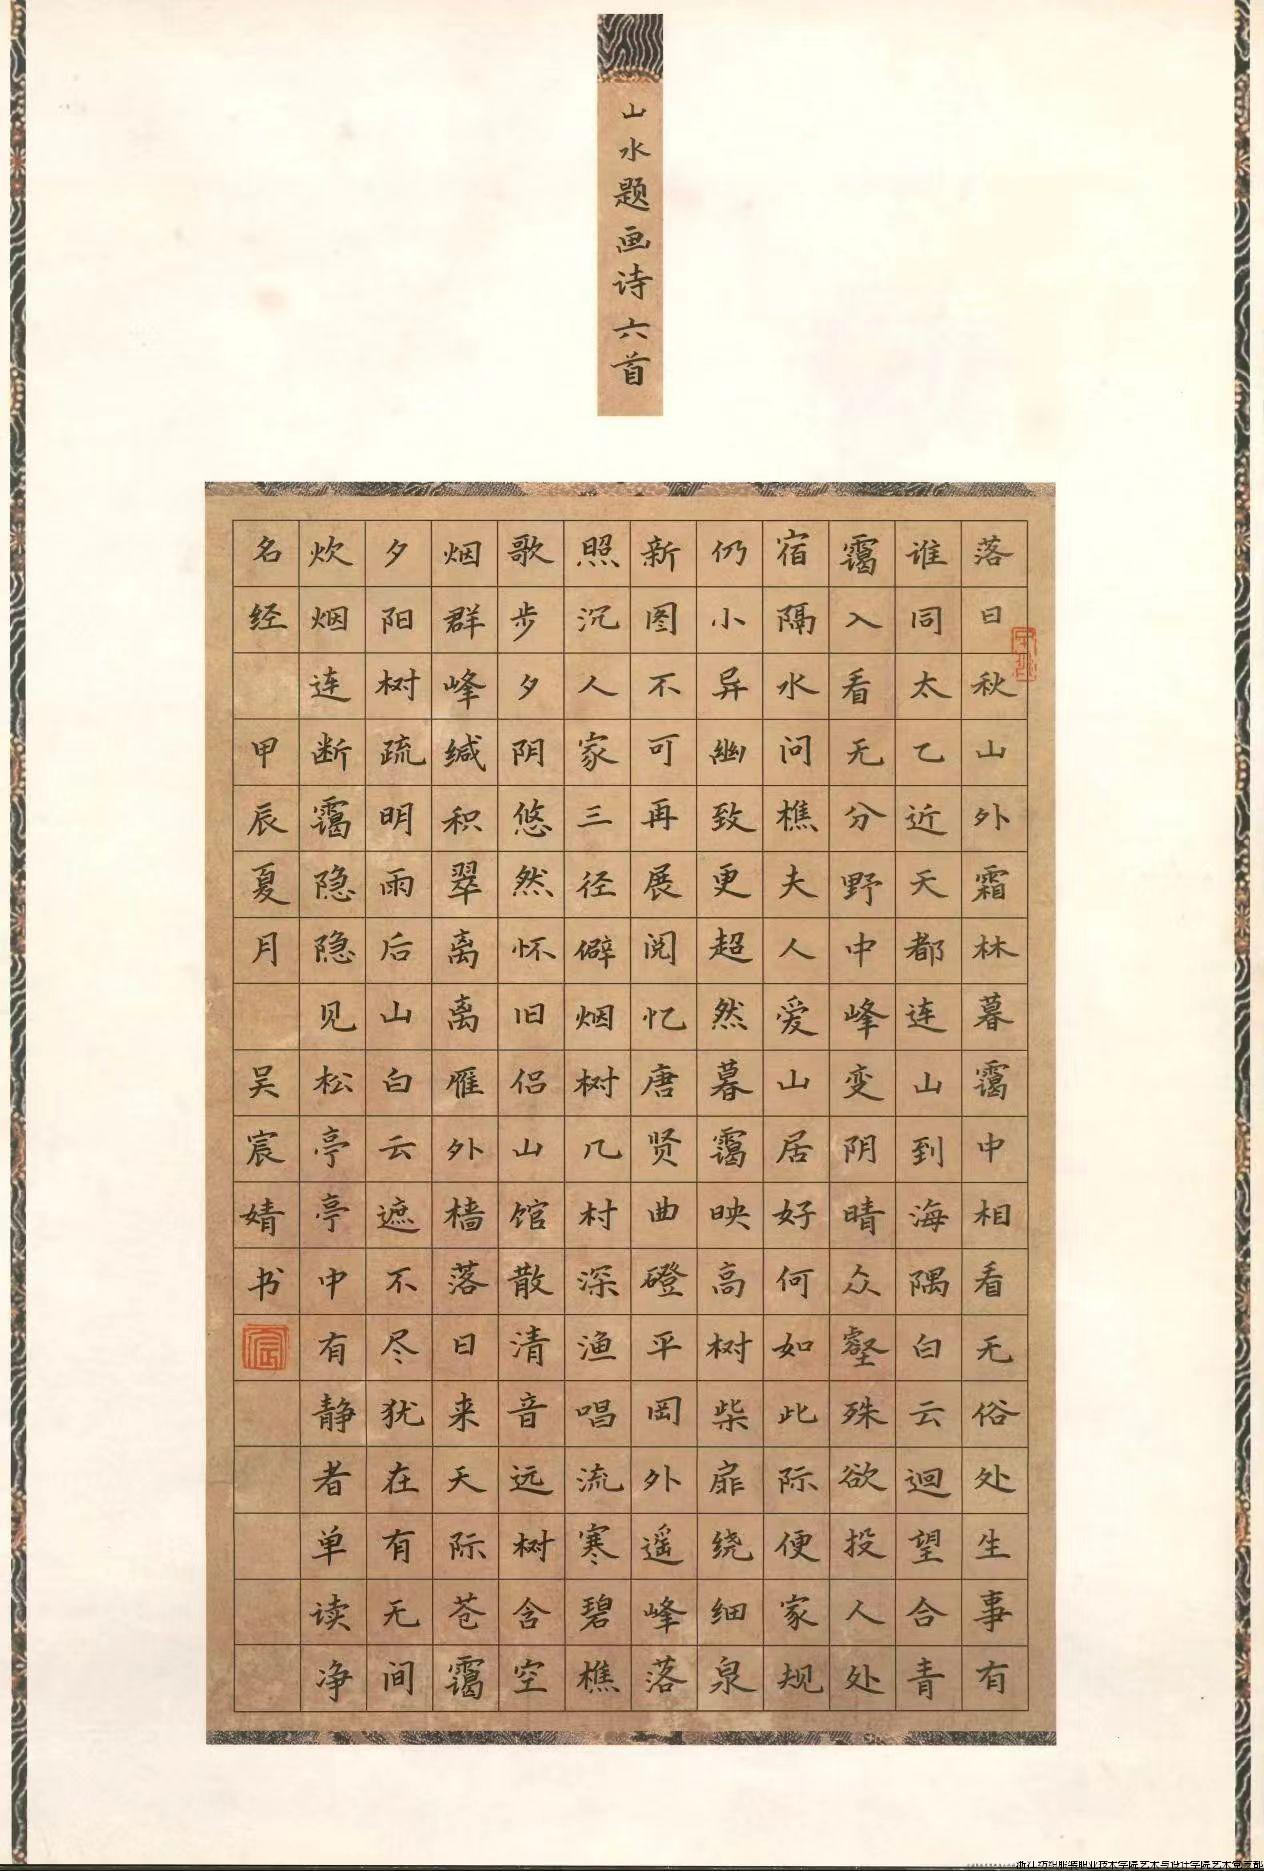 山水题画诗六首
落日秋山外霜林暮霭中相看无俗处生事有
谁同太乙近天都连山到海隅白云迴望合青
霭入看无分野中峰变阴晴众壑殊欲投人处
宿隔水问樵夫人爱山居好何如此际便家规
仍小异幽致更超然暮霭映高树柴扉绕细泉
新图不可再展阅忆唐贤曲磴平冈外遥峰落
照沉人家三径僻烟树几村深渔唱流寒碧樵
歌步夕阴悠然怀旧侣山馆散清音远树含空
烟群峰缄积翠离离雁外樯落日来天际苍霭
夕阳树疏明雨后山白云遮不尽犹在有无间
炊烟连断霭隐隐见松亭亭中有静者单读净
名经 甲辰夏月 吴宸婧书
浙江纺织服装职业技术学院艺术与设计学院艺术党支部